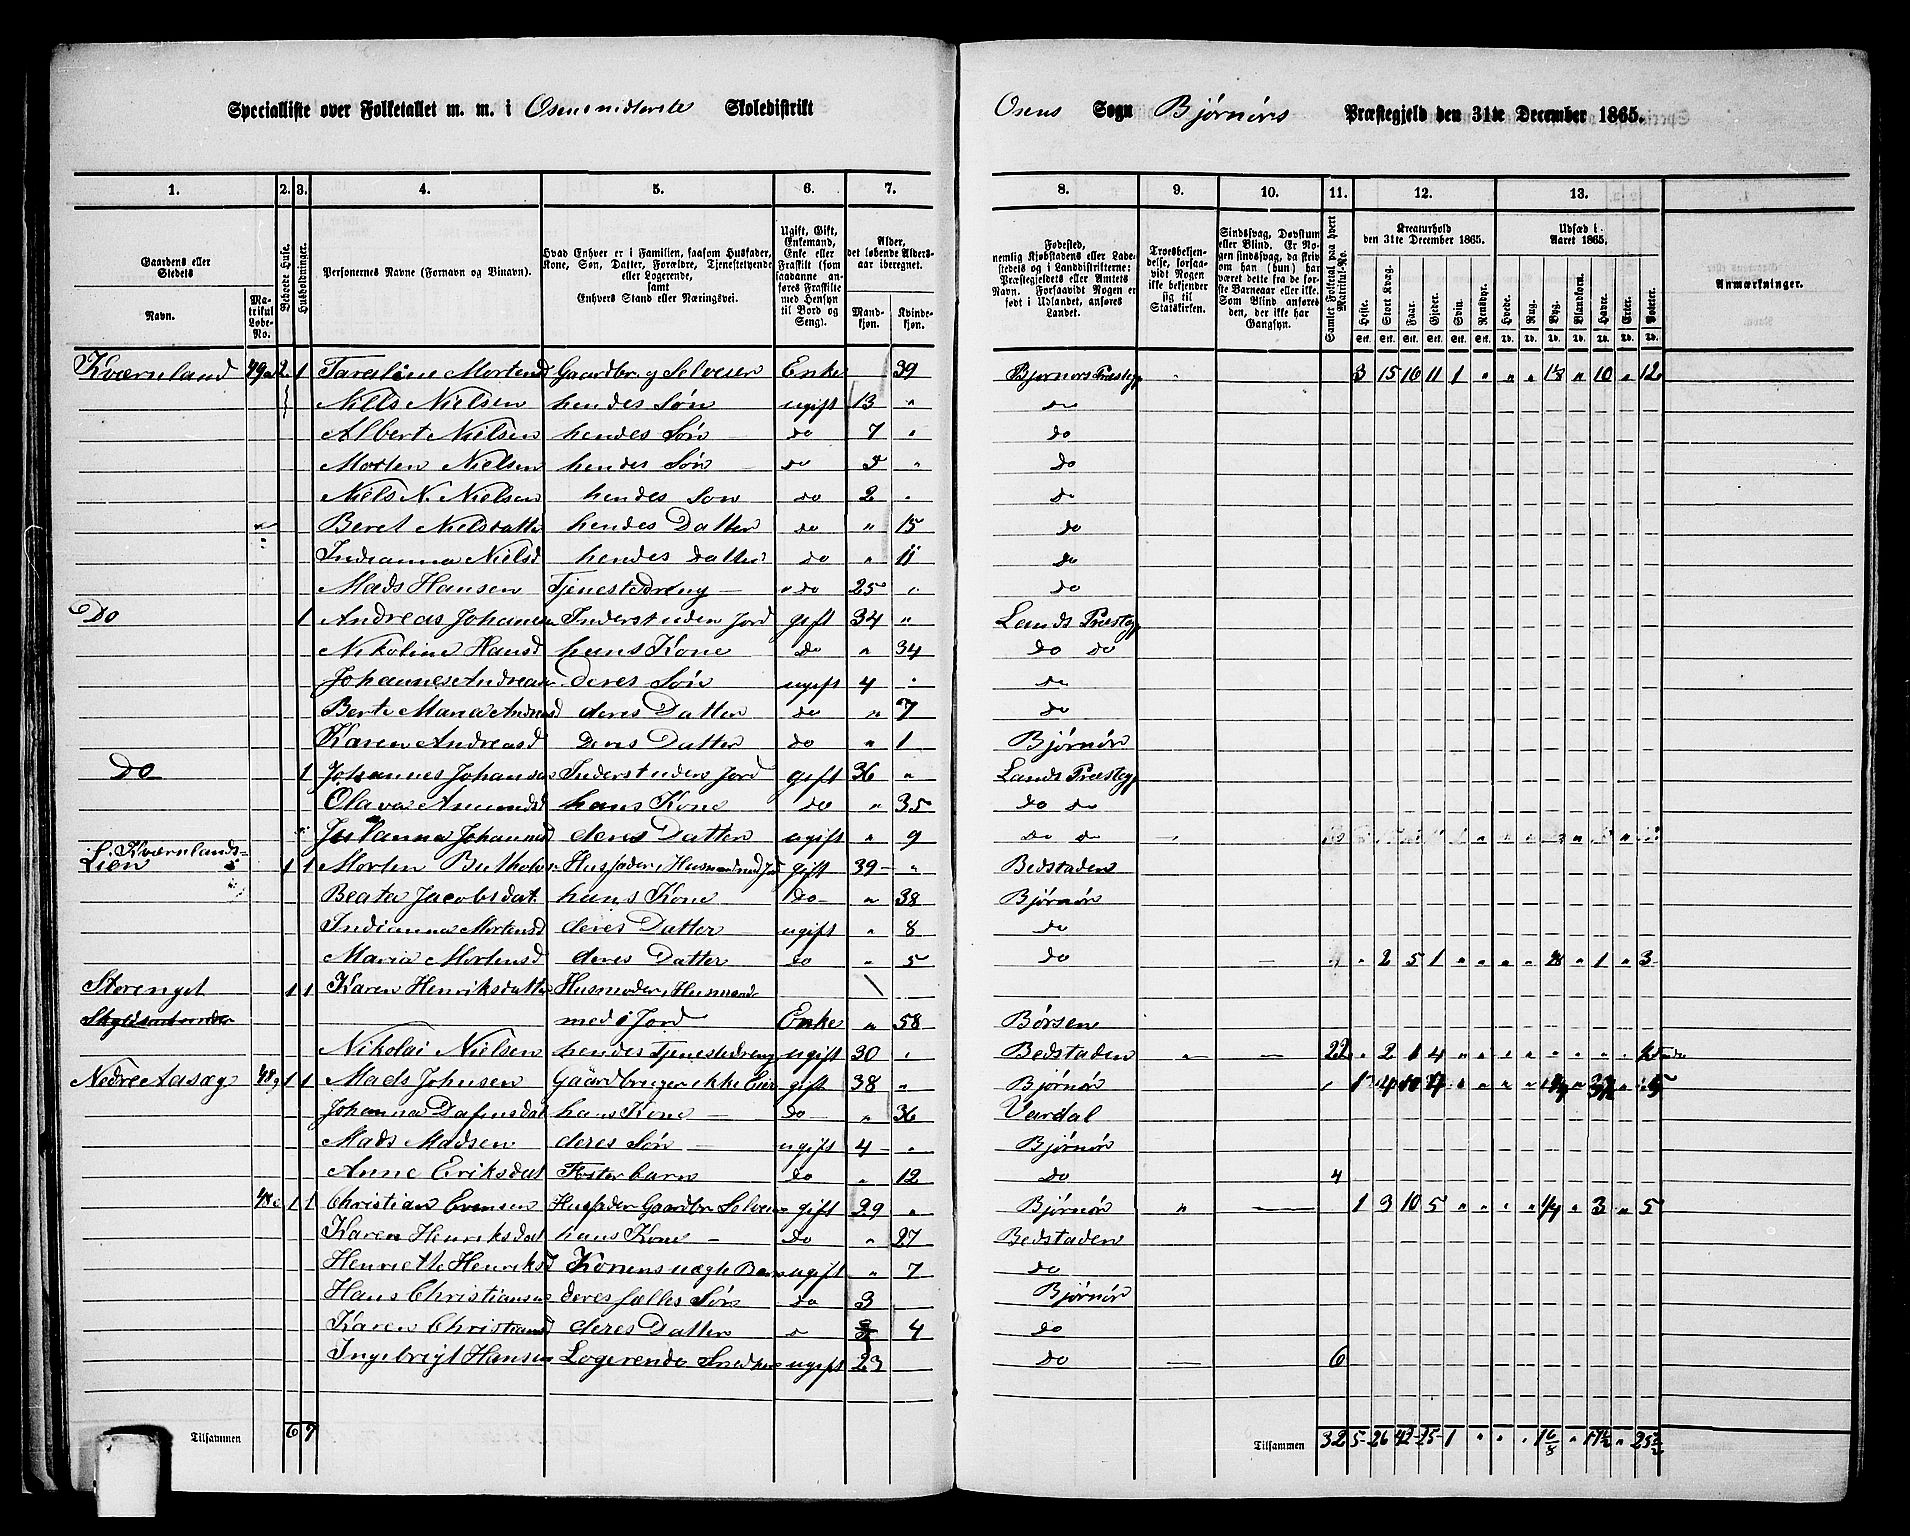 Specialliste over Folketallet m. m. i Osens midterste Skoledistrikt Osens Sogn Bjørnørs Præstegjeld den 31te December 1865.
1. 2. 3. 4. 5. 6. 7. 8. 9. 10. 11. 12. 13.
Gaardens eller Stedets Navn. Matrikul Løbe-No. Beboede Huse. Husholdninger. Personernes Navne (Fornavn og Binavn). Hvad Enhver er i Familien, saasom Husfader, Kone, Søn, Datter, Forældre, Tjenestetyende eller Logerende, samt Enhvers Stand eller Næringsvei. Ugift, Gift, Enkemand, Enke eller Fraskilt (som saadanne anføres Fraskilte med Hensyn til Bord og Seng). Alder, det løbende Aldersaar iberegnet. Mandkjøn. Kvindekjøn. Fødested, nemlig Kjøbstadens eller Ladestedets og i Landdistrikterne: Præstegjeldets eller Amtets Navn. Forsaavidt Nogen er født i Udlandet, anføres Landet. Troesbekjendelse, forsaavidt Nogen ikke bekjender sig til Statskirken. Sindssvag, Døvstum eller Blind. Er Nogen sindssvag, da skrives om han (hun) har været dette fra de første Barneaar eller ikke. Som Blind anføres den, der ikke har Gangsyn. Samlet Folketal paa hvert Matrikul-No. Kreaturhold den 31te December 1865. Heste. Stort Kvæg. Faar. Gjeder. Svin. Rensdyr. Udsæd i Aaret 1865. Hvede. Rug. Byg. Blandkorn. Havre. Erter. Poteter. Anmærkninger.
Kværnland 49a 2 1 Taraline Mortensd Gaardbr. og Selveier Enke 39 Bjørnørs Præstegj 3 15 16 11 1 " " " 1/8 " 10 " 12
Nills Nielsen hendes Søn ugift 13 " do
Albert Nielsen hendes Søn do 7 " do
Morten Nielsen hendes Søn do 5 " do
Niels N. Nielsen hendes Søn do 2 " do
Beret Nielsdatter hendes Datter do " 15 do
Indianna Nielsd hendes datter do " 11 do
Mads Hansen Tjenestedreng do 25 " do
Do 1 Andreas Johansen Inderst uden Jord gift 34 " Lands Præstegj
Nikoline Hansd hans Kone do " 34 do do
Johannes Andreasen deres Søn ugift 4 " do
Berte Maria Andreasd deres Datter do " 7 do
Karen Andreasd Deres Datter do " 1 Bjørnør
Do 1 Johannes Johansen Inderst uden Jord gift 36 " Lands Præstegj
Olava Amundsd hans Kone do " 35 do do
Julianna Johannesd deres Datter ugift " 9 do do
Kværnlands-
Lien 1 1 Morten Husfader, Husmand med Jord gift 39 " Bedstaden
Beata Jacobsdat hans Kone do " 38 Bjørnør
Indianna Mortensd deres Datter ugift " 8 do
Maria Mortensd deres Datter do " 5 do " 2 5 1 " " " " 2/8 " 1 " 3
Storenget 1 1 Karen Henriksdatter Husmoder, Husmand
med Jord Enke " 58 Børsen
Nikolai Nielsen hendes Tjenestedreng ugift 30 " Bedstaden " 22 " 2 1 4 " " " " " " " "
Nedre Aasæg 48 1 1 Mads Johnsen Gaardbruger ikke Eier gift 38 " Bjørnør 1 4 10 4 " " " " " " 5
Johanna hans Kone do " 36 Vardal
Mads Madsen deres Søn ugift 4 " Bjørnør
Anne Eriksdat Fosterbarn do " 12 do 4
48c 1 1 Christian Evensen Husfader Gaardbr Selveier gift 29 " Bjørnør " 1 3 10 5 " " " " 1/4 " 3 " 5
Karen Henriksdat hans Kone do " 27 Bedstaden
Henriette Henriksd Konens uægte Barn ugift " 7 do
Hans Christiansen deres fælles Søn do 3 Bjørnør
Karen Christiansd deres Datter do 4 do
Ingebrigt Hansen Logerende Snedker ugift 23 do 6
Tilsammen 6 7 Tilsammen 32 5 26 42 25 1 " " " 1 6/8 " 17 1/2 " 25 1/2